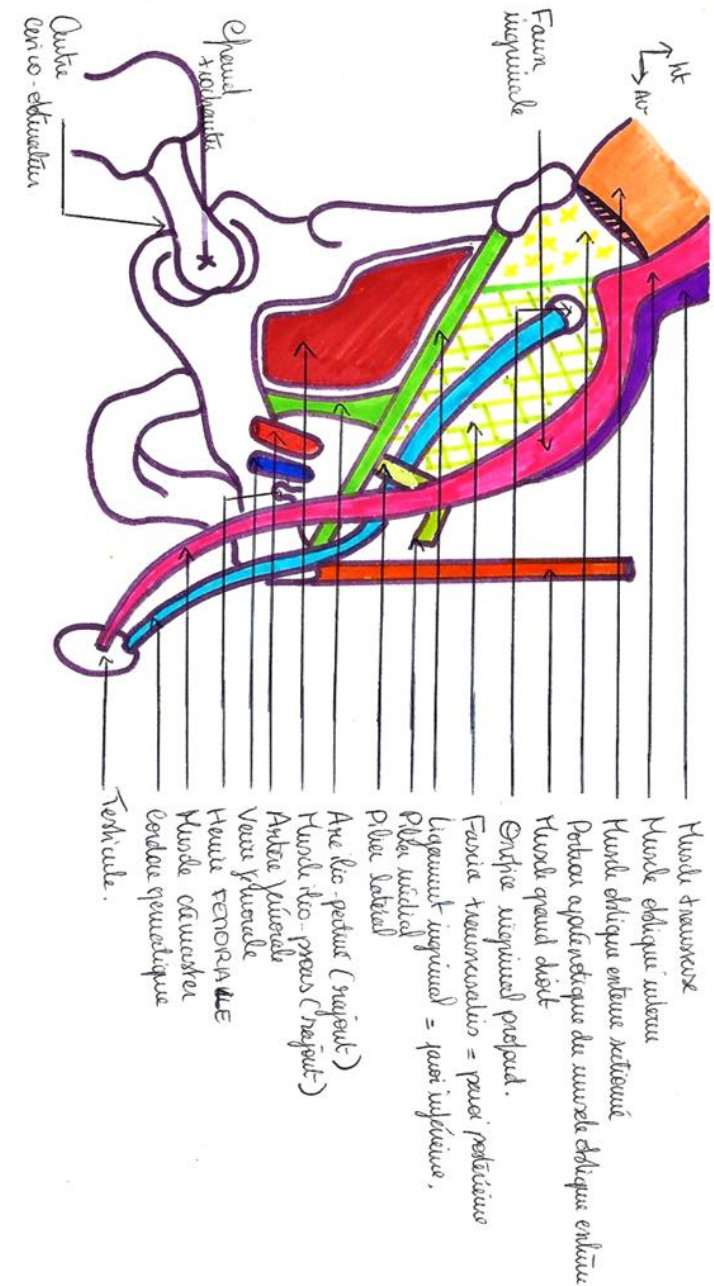 Ht
Av
Faux
inguinale
Grand
trochanter
Arthère
cervico-obturateur
Muscle transverse
Muscle oblique interne
Muscle oblique externe sectionné
Portion aponévrotique du muscle oblique externe
Muscle grand droit
Orifice inguinal profond.
Fascia transversalis = paroi postérieure
Ligament inguinal = paroi inférieure.
Pilier médial
Pilier latéral
Arc ilio-pectiné (rajout)
Muscle ilio-psoas (rajout)
Artère fémorale
Veine fémorale
Hernie FEMORALE
Muscle crémaster
Cordon spermatique
Testicule.